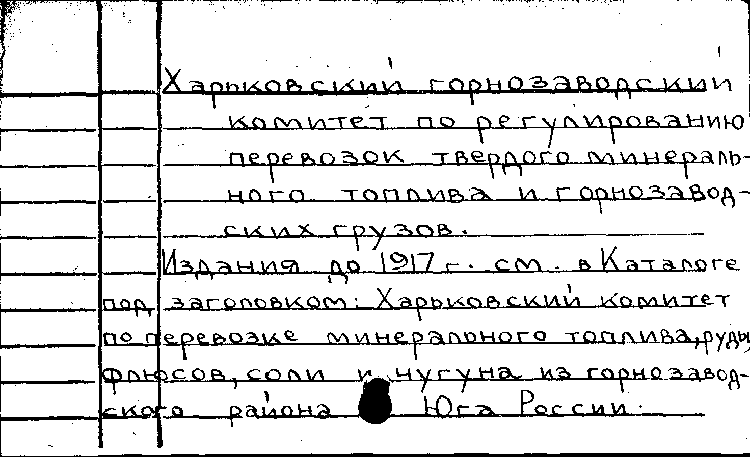 Харьковский горнозаводский
комитет по регулированию
перевозок твердого минераль-
ного топлива и горнозавод-
ских грузов.
Издания до 1917 г. см. в Каталоге
под заголовком: Харьковский комитет
по перевозке минерального топлива, руды,
флюсов, соли и чугуна из горнозавод-
ского района Юга России.